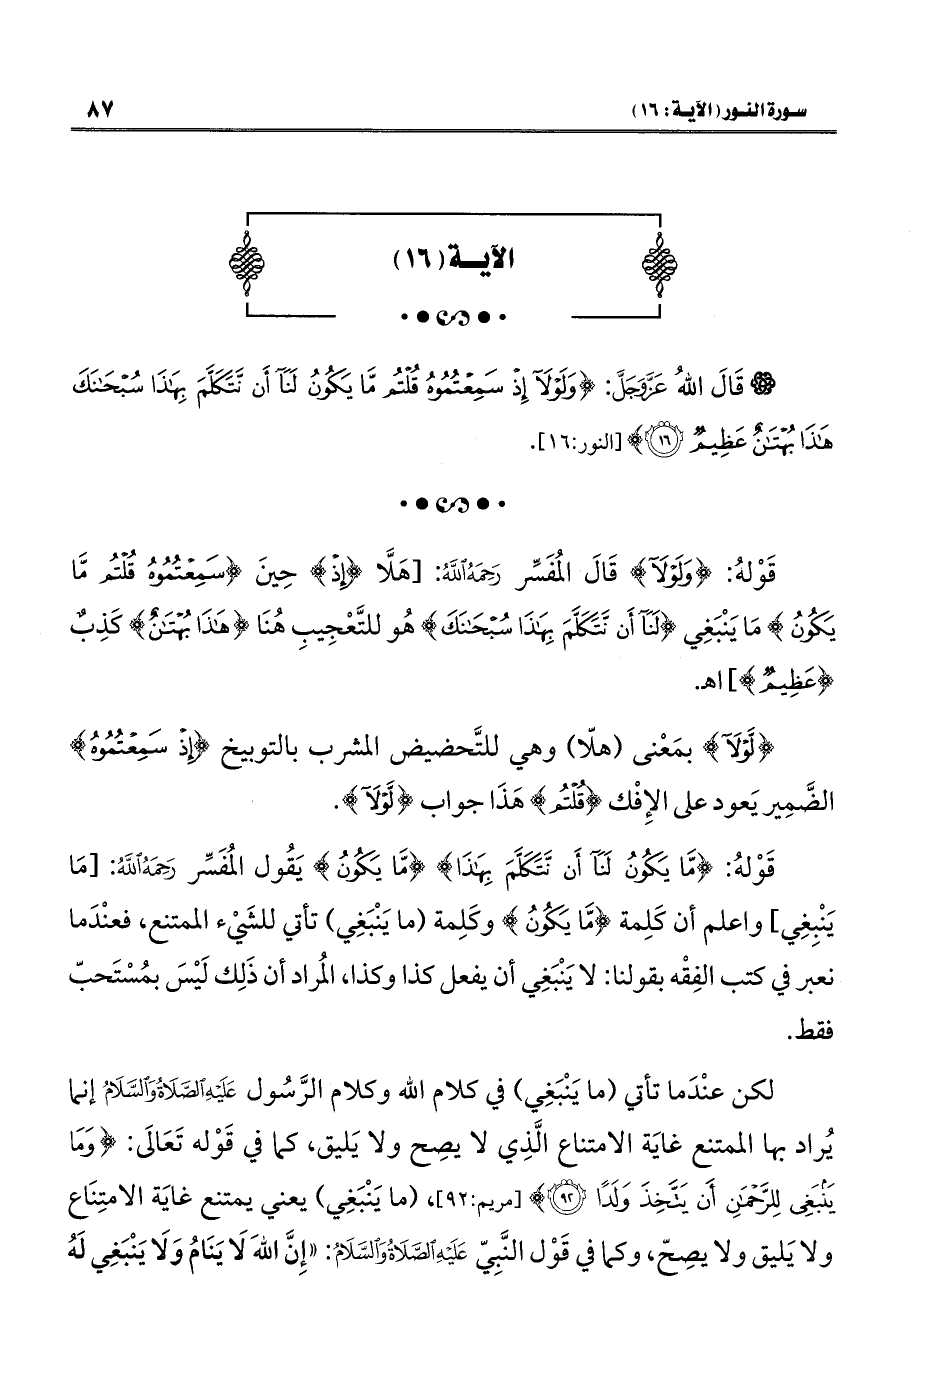 سورة النور (الآية: ١٦)
٨٧
الآيــة (١٦)
قَالَ اللهُ عَزَّوَجَلَّ: ﴿وَلَوْلَآ إِذْ سَمِعْتُمُوهُ قُلْتُم مَّا يَكُونُ لَنَآ أَن نَّتَكَلَّمَ بِهَٰذَا سُبْحَٰنَكَ
هَٰذَا بُهْتَٰنٌ عَظِيمٌ ١٦﴾ [النور:١٦].
قَوْلهُ: ﴿وَلَوْلَآ﴾ قَالَ المُفَسِّر رَحِمَهُ ٱللَّهُ: [هَلَّا ﴿إِذْ﴾ حِينَ ﴿سَمِعْتُمُوهُ قُلْتُم مَّا
يَكُونُ﴾ مَا يَنْبَغِي ﴿لَنَآ أَن نَّتَكَلَّمَ بِهَٰذَا سُبْحَٰنَكَ﴾ هُو للتَّعْجِيبِ هُنَا ﴿هَٰذَا بُهْتَٰنٌ﴾ كَذِبٌ
﴿عَظِيمٌ﴾] اهـ.
﴿لَّوْلَآ﴾ بمَعْنى (هلّا) وهي للتَّحضيض المشرب بالتوبيخ ﴿إِذْ سَمِعْتُمُوهُ﴾
الضَّمِير يَعود على الإِفْك ﴿قُلْتُم﴾ هَذَا جواب ﴿لَّوْلَآ﴾.
قَوْلهُ: ﴿مَّا يَكُونُ لَنَآ أَن نَّتَكَلَّمَ بِهَٰذَا﴾ ﴿مَّا يَكُونُ﴾ يَقُول المُفَسِّر رَحِمَهُ ٱللَّهُ: [مَا
يَنْبِغِي] واعلم أن كَلِمة ﴿مَّا يَكُونُ﴾ وكَلِمة (ما يَنْبَغِي) تأتي للشَيْء الممتنع، فعنْدَما
نعبر في كتب الفِقْه بقولنا: لا يَنْبَغِي أن يفعل كذا وكذا، المُراد أن ذَلِك لَيْسَ بمُسْتَحبّ
فقط.
لكن عنْدَما تأتي (ما يَنْبَغِي) في كلام الله وكلام الرَّسُول عَلَيْهِ ٱلصَّلَاةُ وَٱلسَّلَامُ إنما
يُراد بها الممتنع غايَة الامتناع الَّذِي لا يصِح ولا يَليق، كما في قَوْله تَعَالَى: ﴿وَمَا
يَنۢبَغِى لِلرَّحْمَٰنِ أَن يَتَّخِذَ وَلَدًا ٩٢﴾ [مريم:٩٢]، (ما يَنْبَغِي) يعني يمتنع غايَة الامتِنَاع
ولا يَليق ولا يصِحّ، وكما في قَوْل النَّبِيّ عَلَيْهِ ٱلصَّلَاةُ وَٱلسَّلَامُ: «إِنَّ اللهَ لَا يَنَامُ وَلَا يَنْبَغِي لَهُ